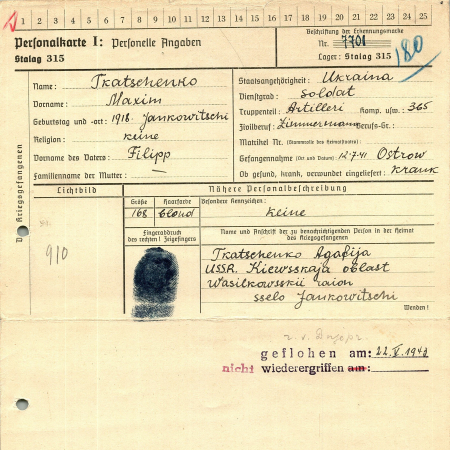 1 2 3 4 5 6 7 8 9 10 11 12 13 14 15 16 17 18 19 20 21 22 23 24 25
Personalkarte I: Personelle Angaben
Stalag 315
Beschriftung der Erkennungsmarke
Nr. 7701
Lager: Stalag 315
180
Des Kriegsgefangenen
Name: Tkatschenko
Vorname: Maxim
Geburtstag und -ort: 1918. Jankowitschi
Religion: keine
Vorname des Vaters: Filipp
Familienname der Mutter: —
Staatsangehörigkeit: Ukraina
Dienstgrad: Soldat
Truppenteil: Artilleri Komp. usw.: 365
Zivilberuf: Zimmermann Berufs-Gr.:
Matrikel Nr. (Stammrolle des Heimatstaates):
Gefangennahme (Ort und Datum) 12.7.41 Ostrow
Ob gesund, krank, verwundet eingeliefert: krank
Lichtbild
Nähere Personalbeschreibung
Größe Haarfarbe Besondere Kennzeichen:
168 blond keine
910
Fingerabdruck
des rechten ! Zeigefingers
Name und Anschrift der zu benachrichtigenden Person in der Heimat
des Kriegsgefangenen
Tkatschenko Agafija
USSR. Kiewsskaja oblast
Wasilkowsskii raion
sselo Jankowitschi
Wenden!
geflohen am: 22.V.1943
nicht wiederergriffen am: